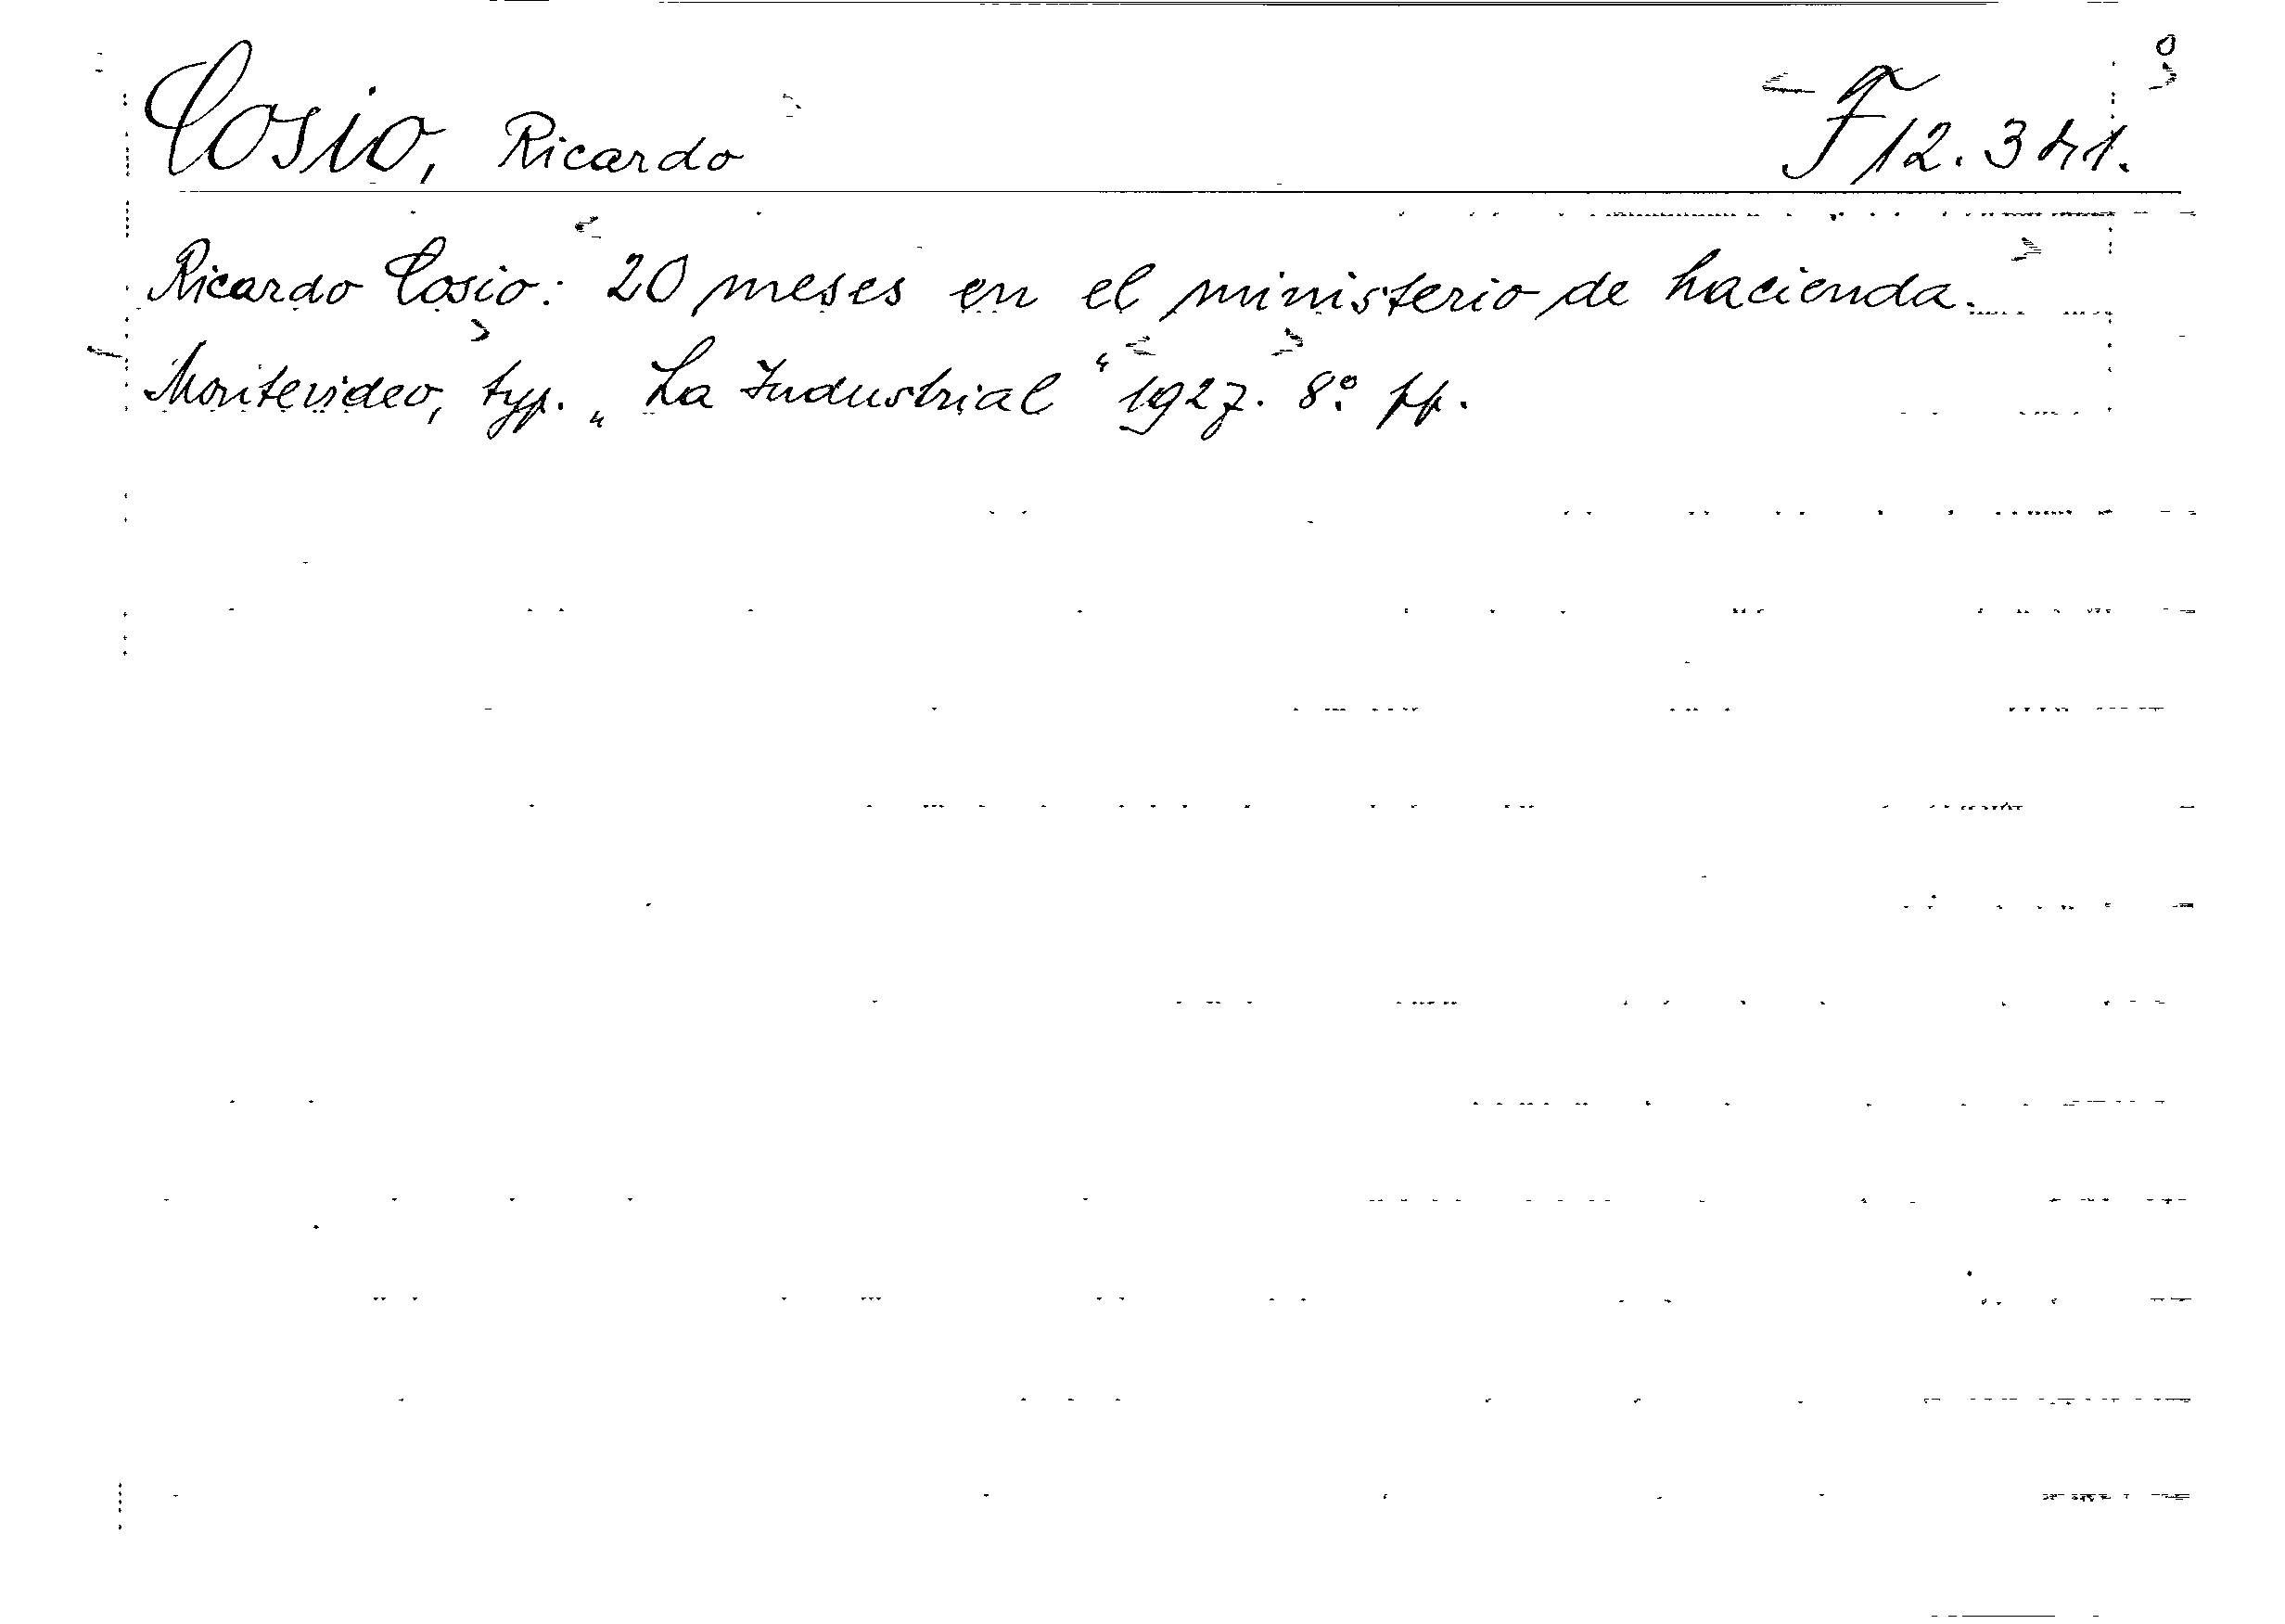 Cosio, Ricardo F 12.341.
Ricardo Cosio: 20 meses en el ministerio de hacienda.
Montevideo, typ. „La Industrial“ 1927. 8° pp.